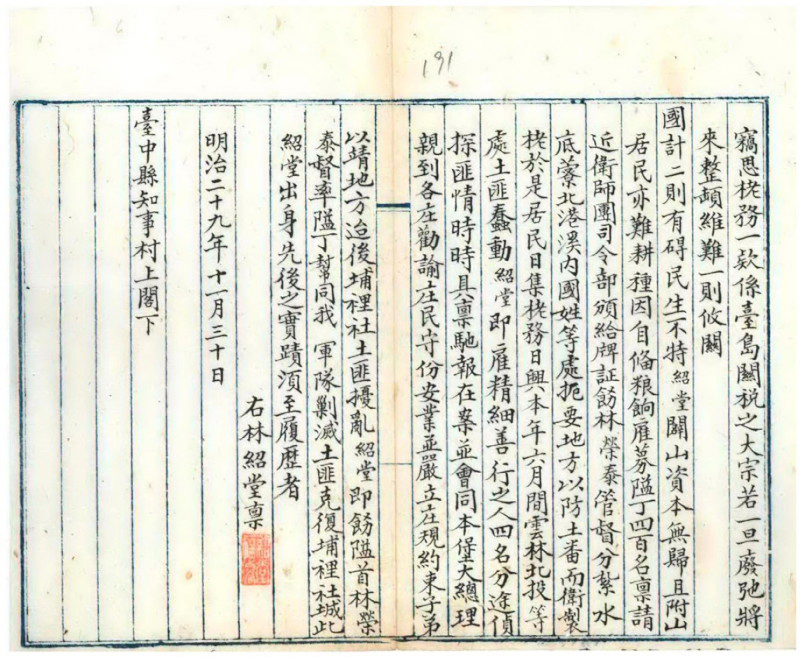 191
竊思栳務一欵係臺島關稅之大宗若一旦廢弛將
來整頓維難一則攸關
國計二則有碍民生不特紹堂開山資本無歸且附山
居民亦難耕種因自俻粮餉雇募隘丁四百名禀請
近衛師團司令部頒給牌証飭林榮泰管督分紮水
底藔北港溪內國姓等處扼要地方以防土番而衛製
栳於是居民日集栳務日興本年六月間雲林北投等
處土匪蠢動紹堂即雇精細善行之人四名分途偵
探匪情時時具禀馳報在案並會同本堡大總理
親到各庄勸諭庄民守份安業並嚴立庄規約束子弟
以靖地方迨後埔裡社土匪擾亂紹堂即飭隘首林榮
泰督率隘丁幫同我 軍隊剿滅土匪克復埔裡社城此
紹堂出身先後之實蹟須至履歷者
右林紹堂禀
明治二十九年十一月三十日
臺中縣知事村上閣下